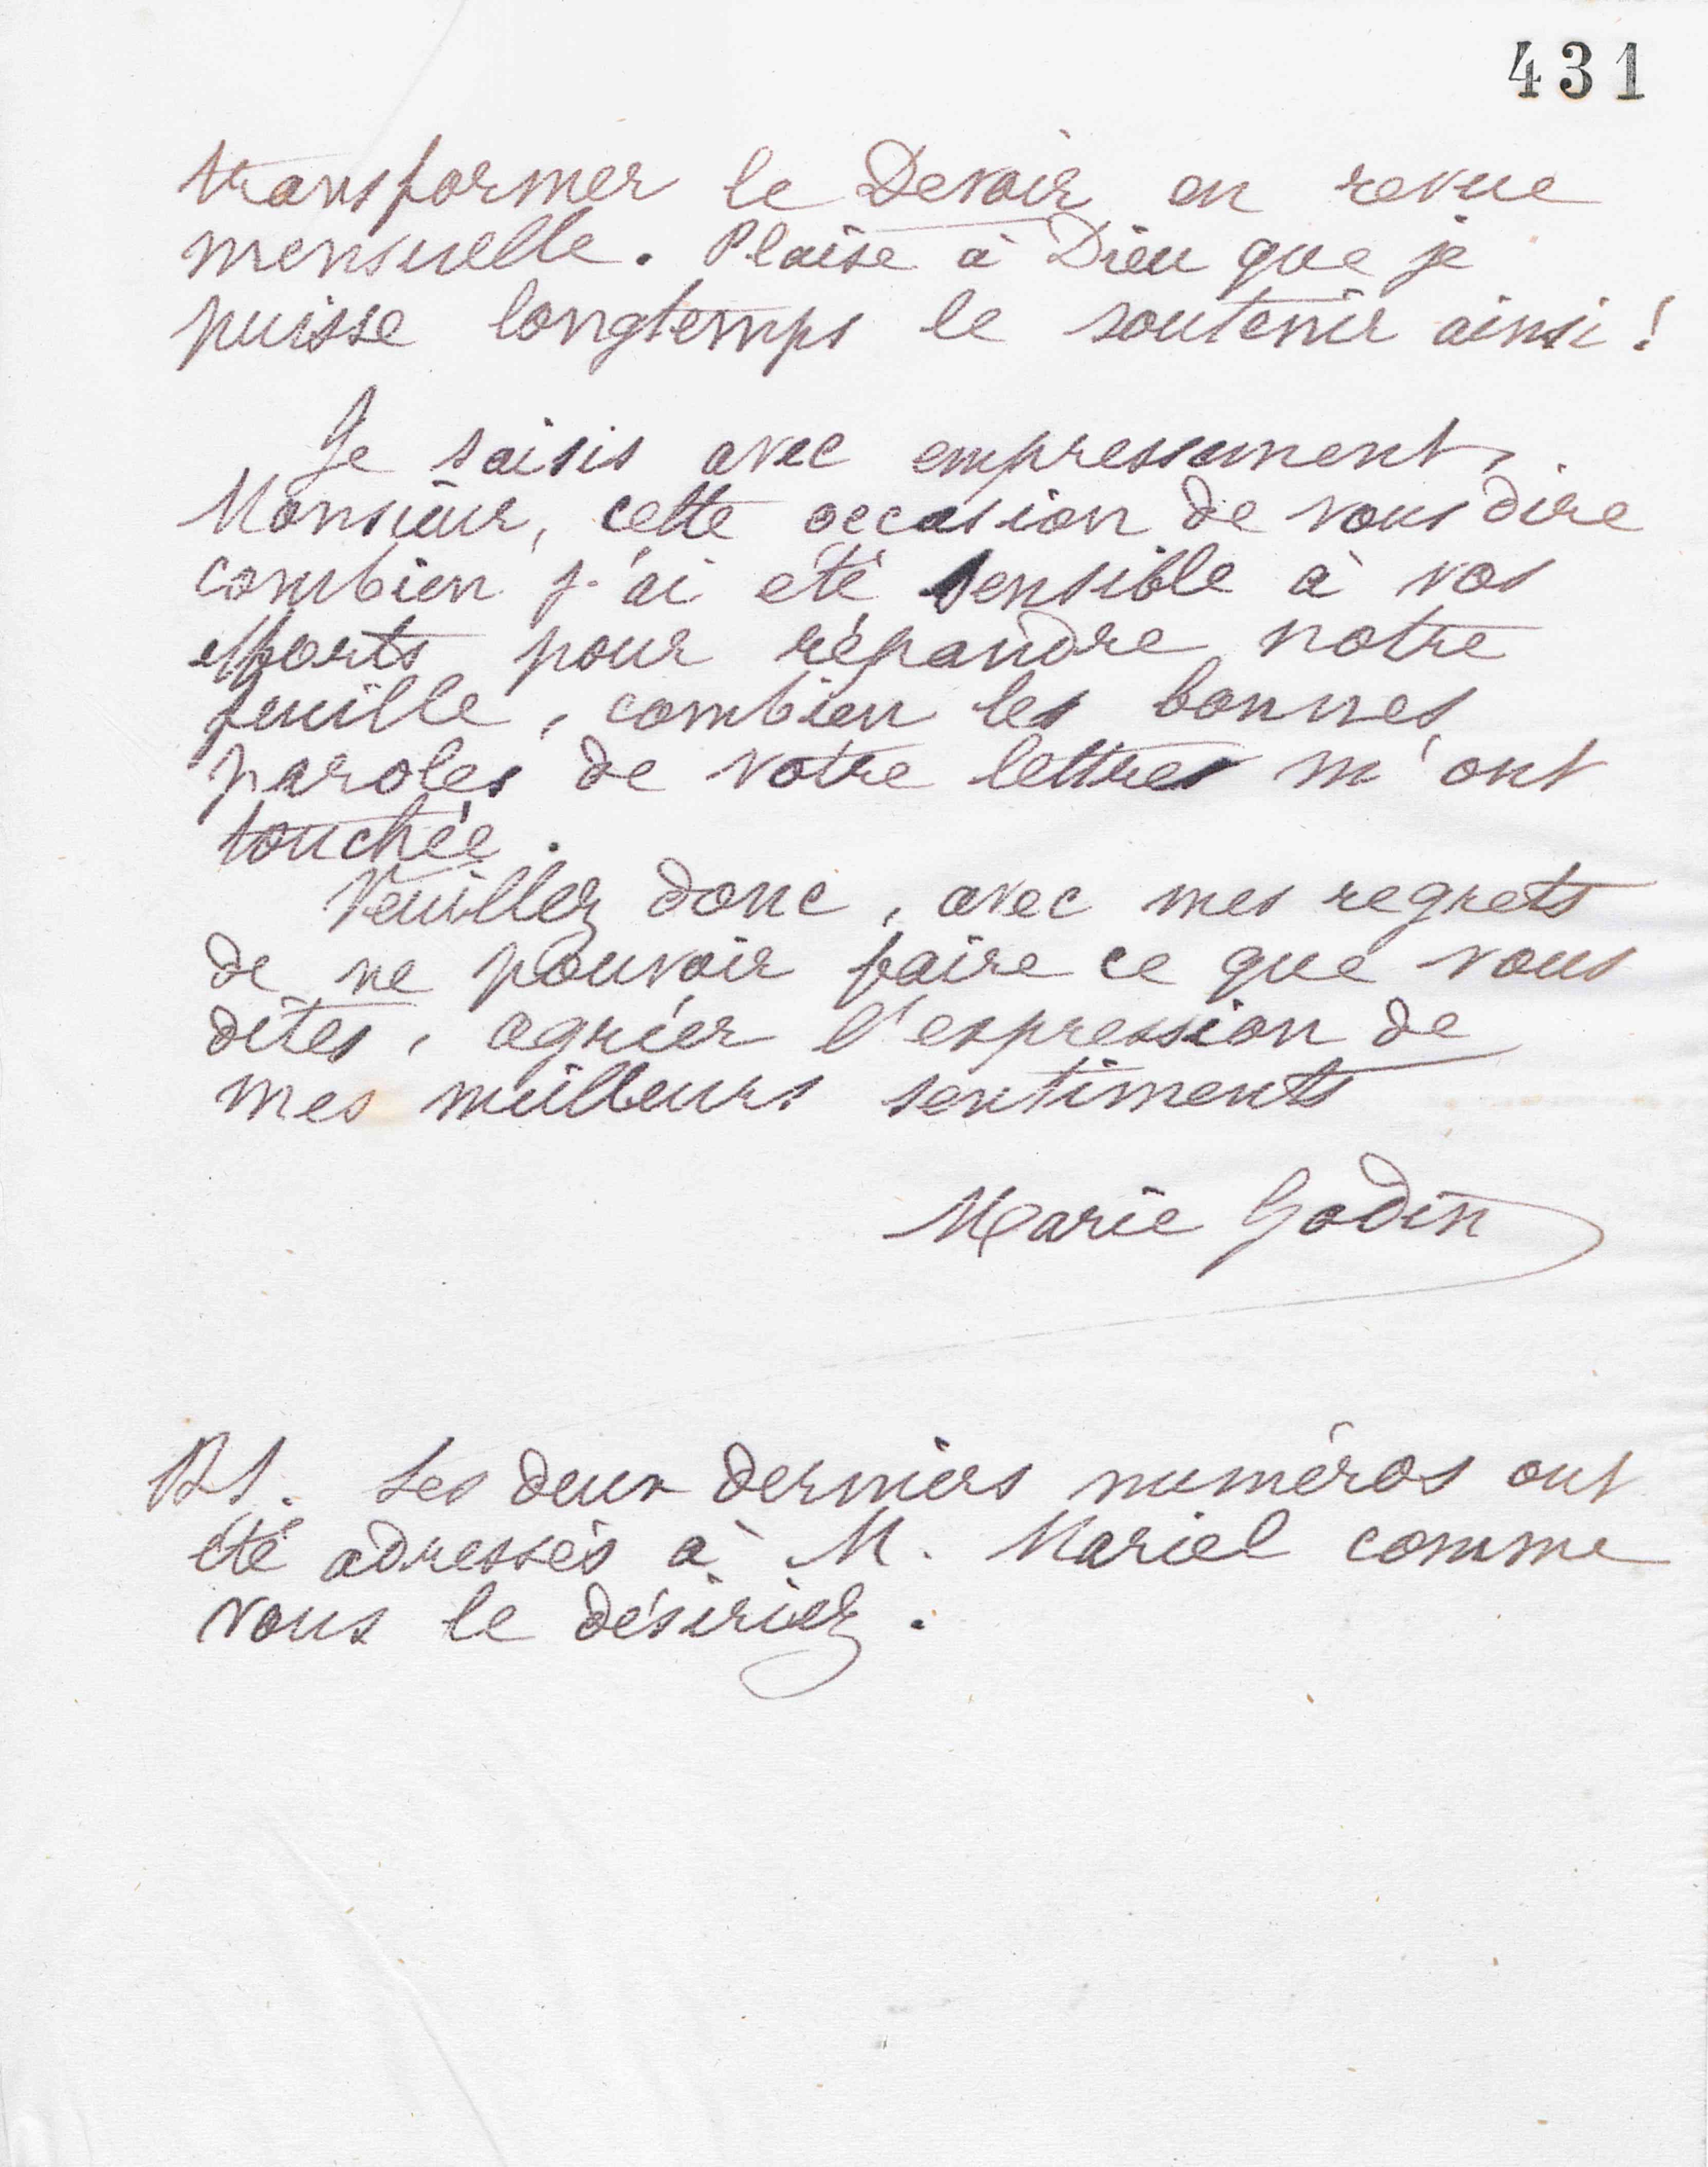 431
transformer le Devoir en revue
mensuelle. Plaise à Dieu que je
puisse longtemps le soutenir ainsi !
Je saisis avec empressement,
Monsieur, cette occasion de vous dire
combien j'ai été sensible à vos
efforts pour répandre notre
feuille, combien les bonnes
paroles de votre lettre m'ont
touchée.
Veuillez donc, avec mes regrets
de ne pouvoir faire ce que vous
dites, agréer l'expression de
mes meilleurs sentiments
Marie Godin
P.S. Les deux derniers numéros ont
été adressés à M. Mariel comme
vous le désiriez.